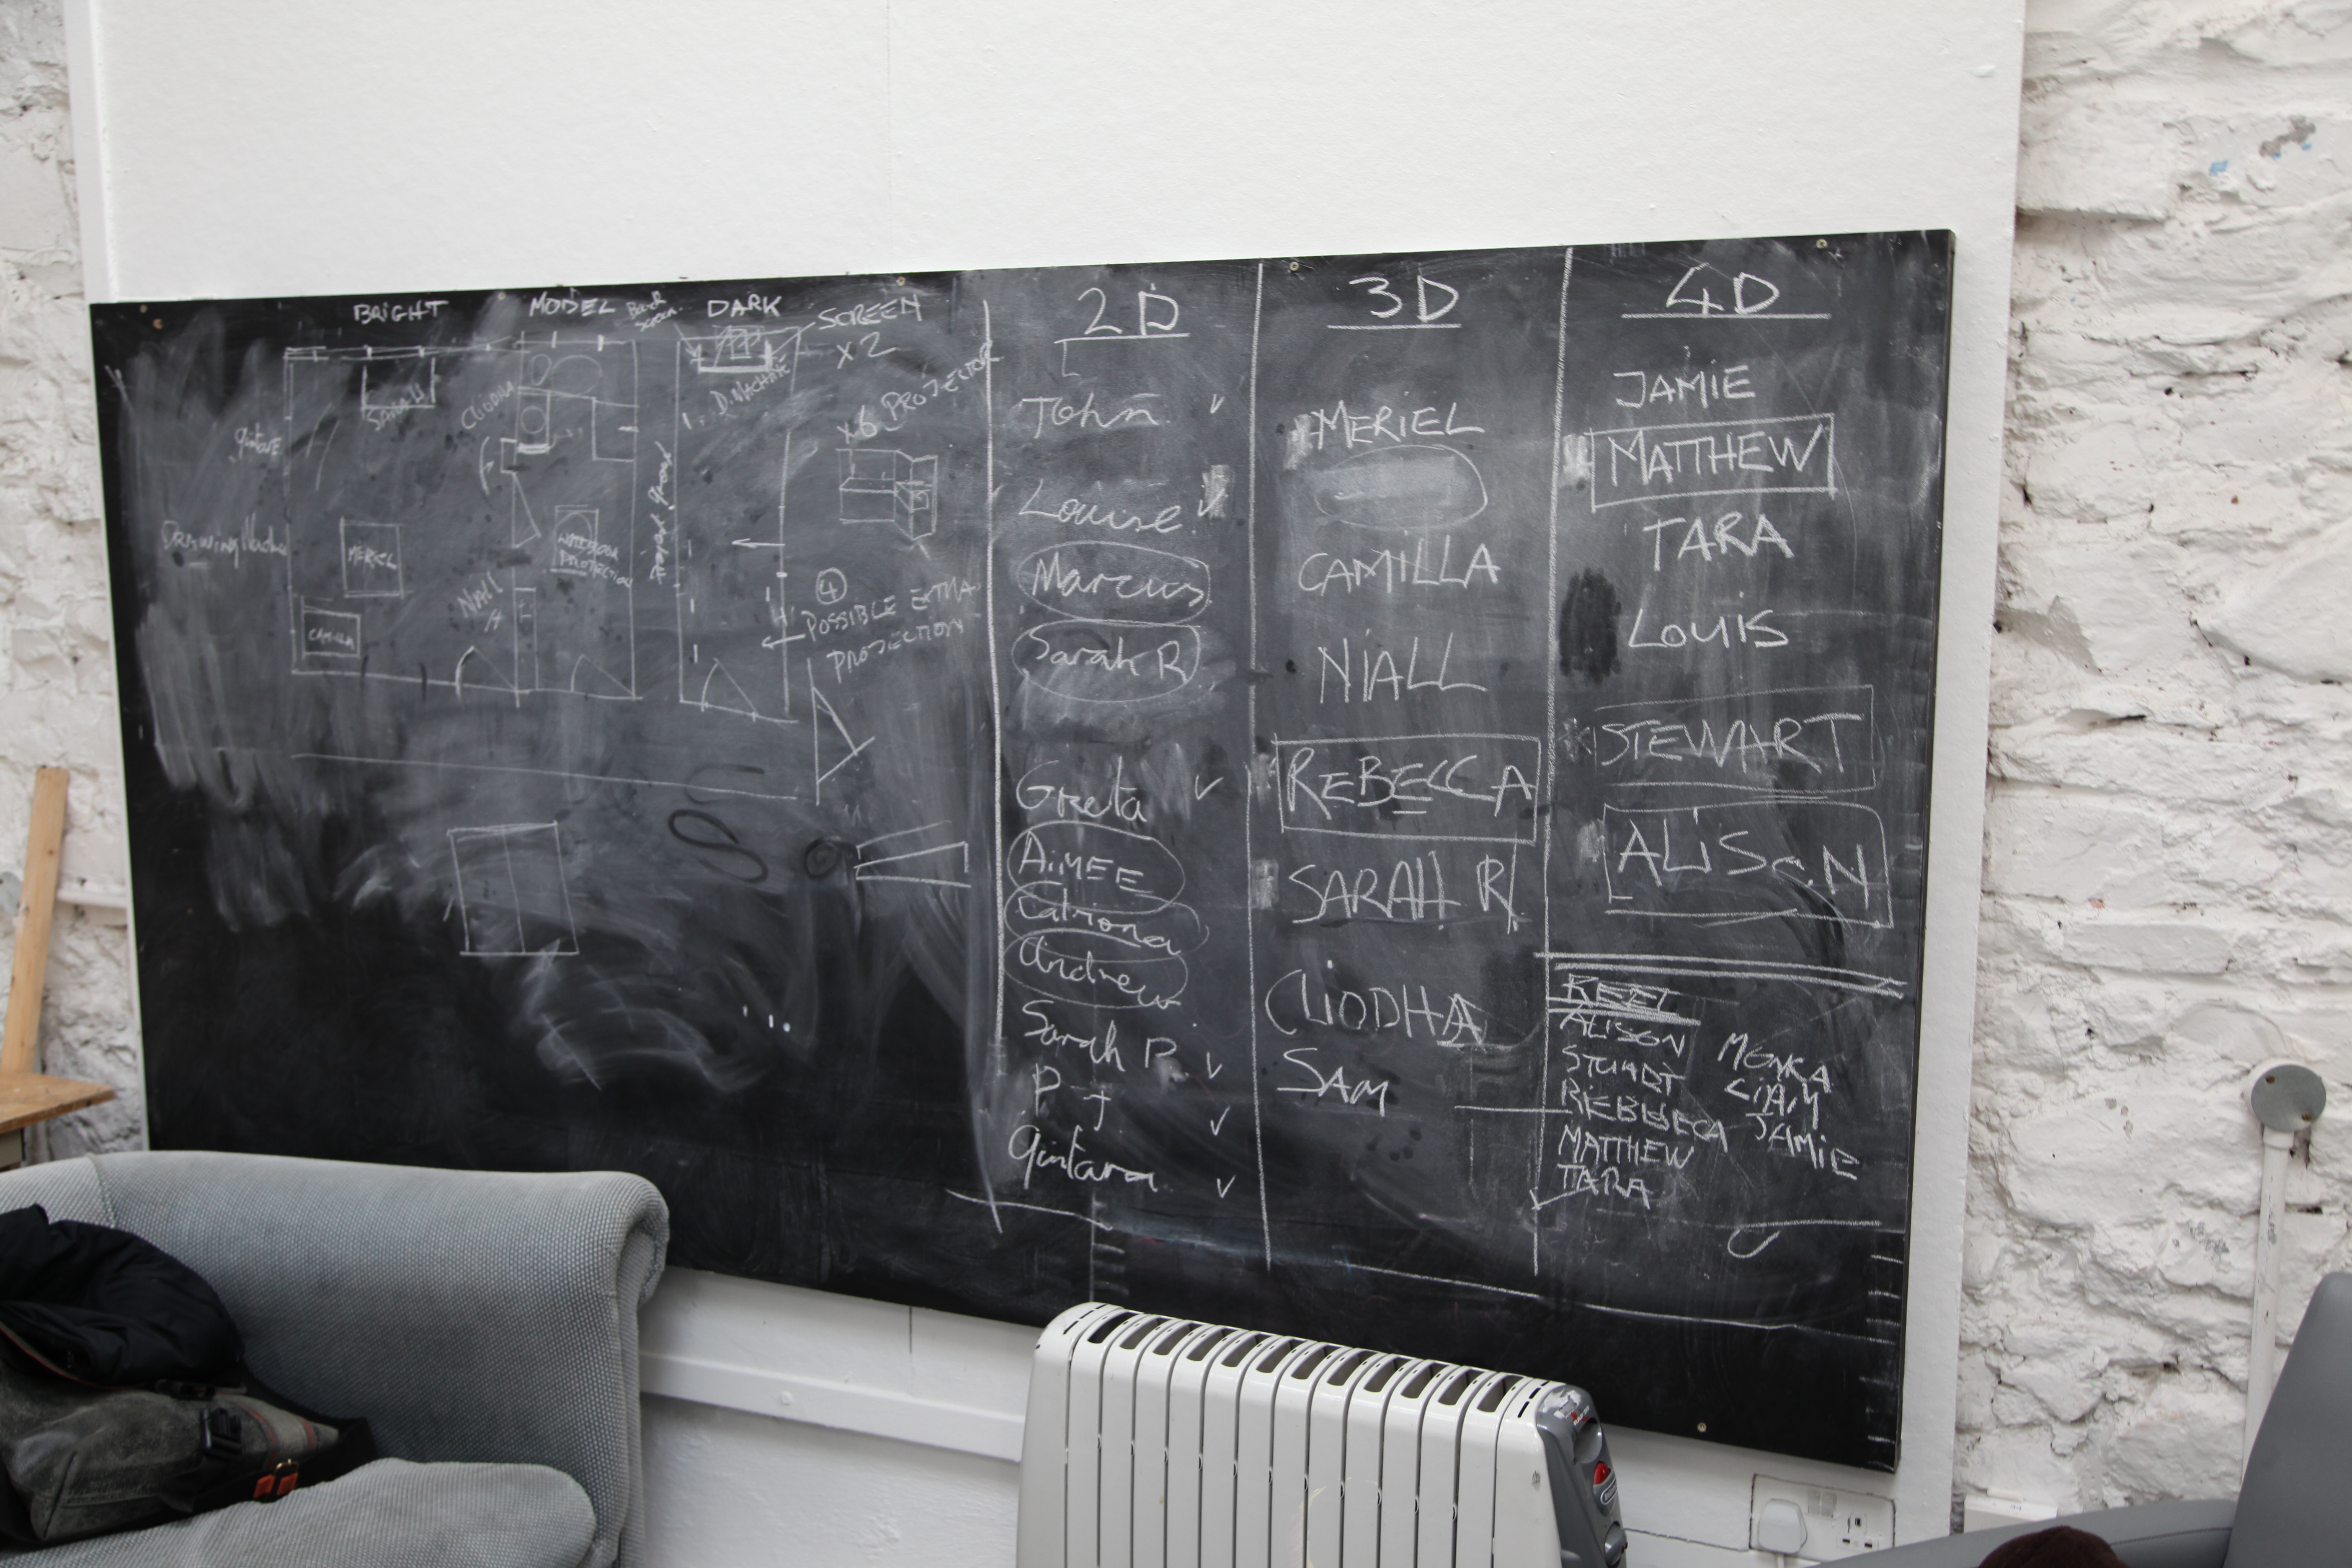 BRIGHT
MODEL
DARK
SCREEN
X2
D. MACHINE
x6 PROJECTOR
SARAH
CLIODHA
MERIEL
NIALL
CAMILLA
PROJECTION
④
POSSIBLE EXTRA
PROJECTION
2D
John ✓
Louise ✓
Marcus
Sarah R
Greta ✓
AiMEE
Catriona
Andrew
Sarah P. ✓
P J ✓
Gintara ✓
3D
MERIEL
CAMILLA
NIALL
REBECCA
SARAH R
CLIODHA
SAM
4D
JAMIE
MATTHEW
TARA
LOUIS
STEWART
ALISON
REEL
ALISON
STUART
REBBECA
MATTHEW
TARA
MONKA
LIAM
JAMIE